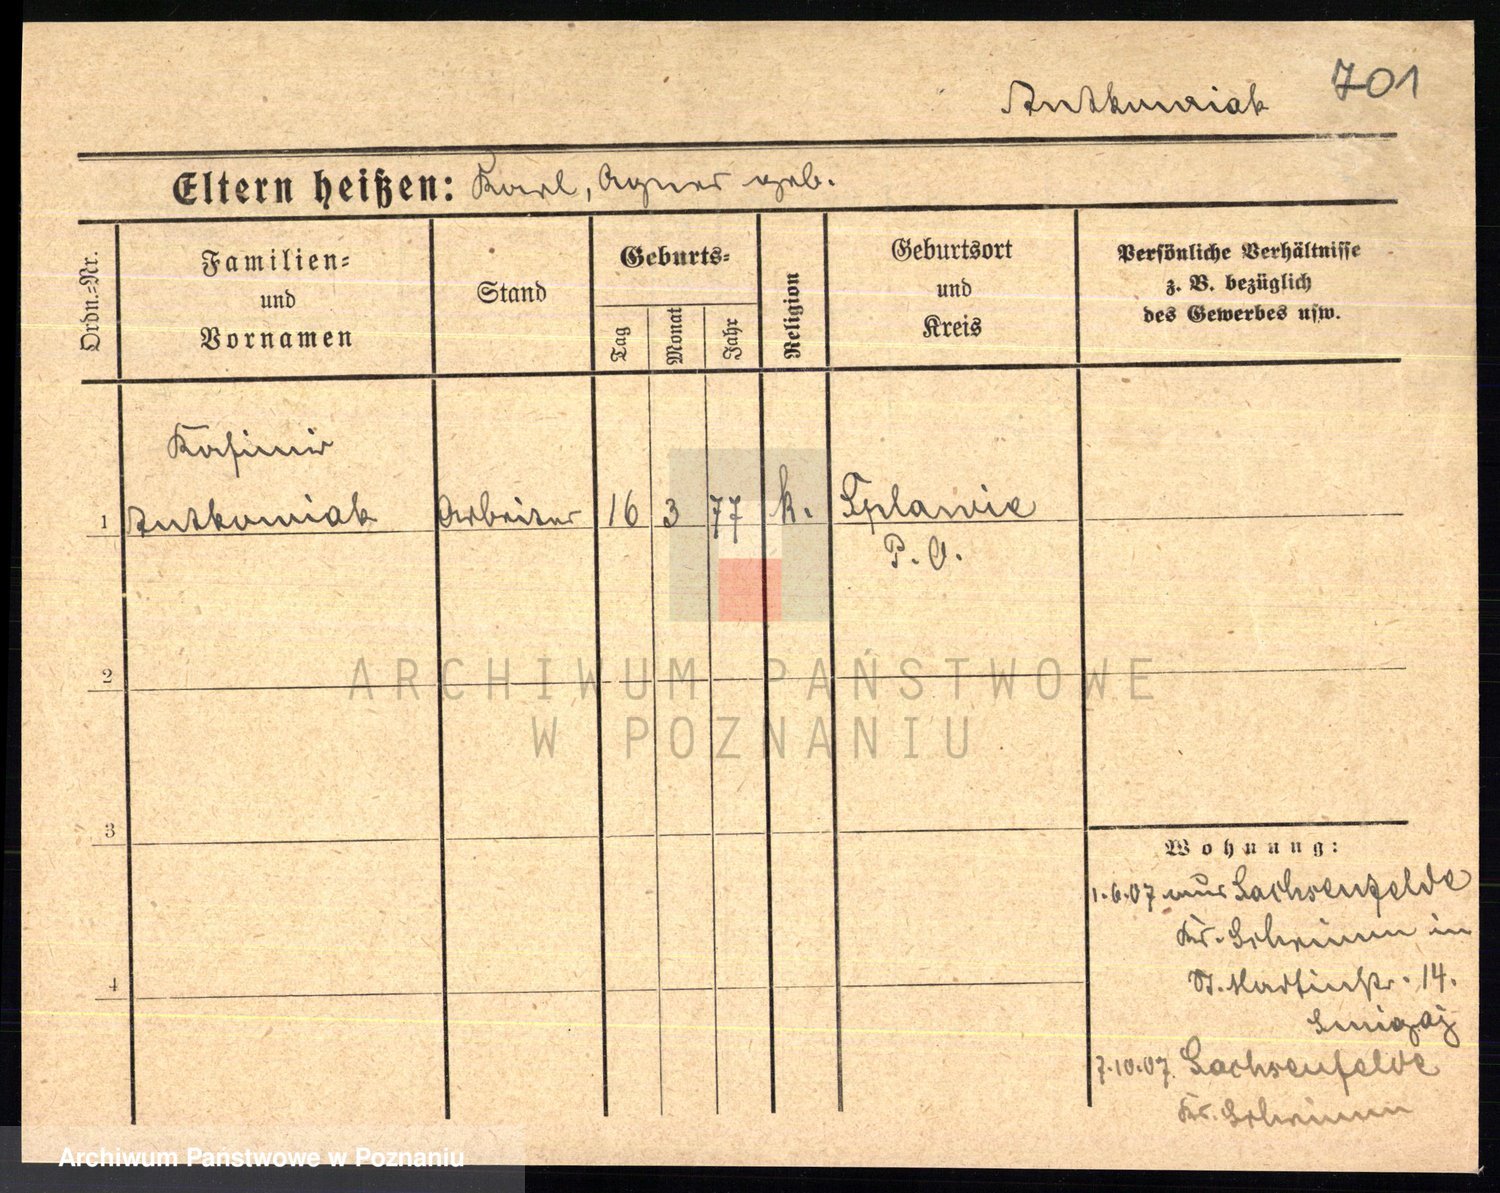 701
Antkowiak
Eltern heißen: Karl, Agnes geb.
Ordn.-Nr.
Familien-
und
Vornamen
Stand
Geburts-
Tag
Monat
Jahr
Religion
Geburtsort
und
Kreis
Persönliche Verhältnisse
z. B. bezüglich
des Gewerbes usw.
Kasimir
1 Antkowiak Arbeiter 16 3 77 k. Splawie
P. O.
2
3
4
Wohnung:
1.6.07 aus Sachsenfelde
Kr. Schrimm in
St. Martinstr. 14.
Smigaj
7.10.07 Sachsenfelde
Kr. Schrimm
ARCHIWUM PAŃSTWOWE
W POZNANIU
Archiwum Państwowe w Poznaniu